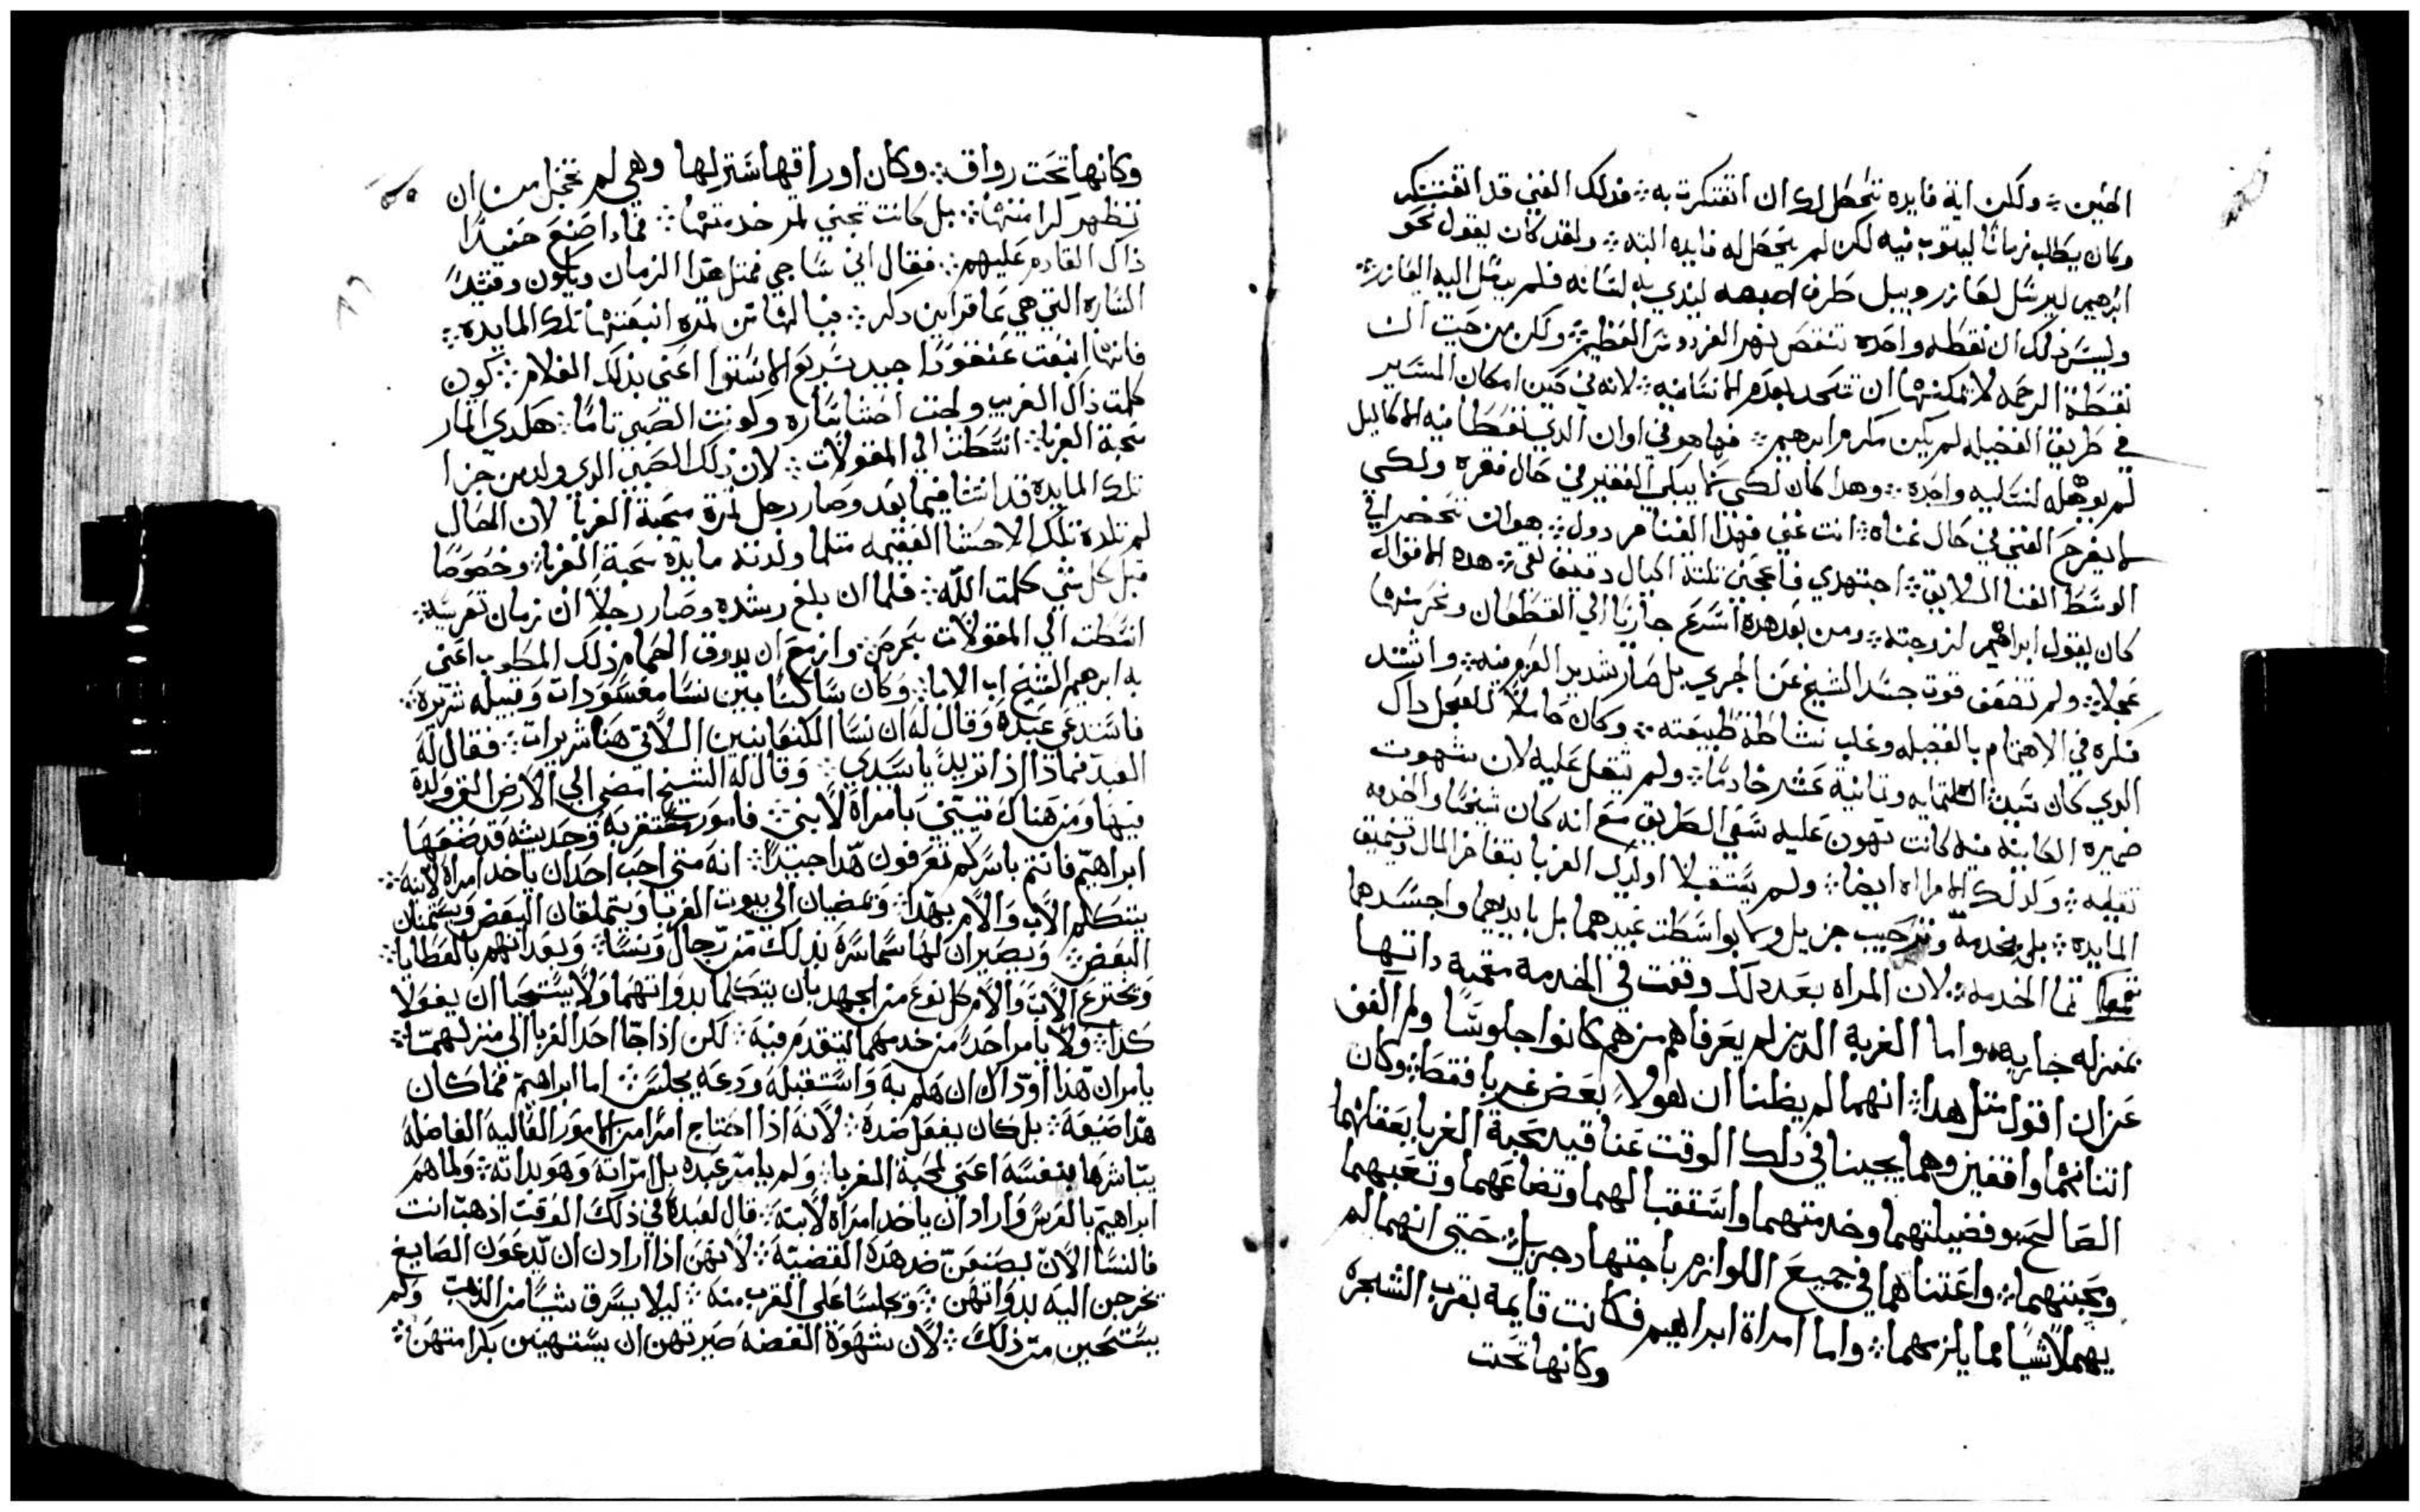 الحين ؞ ولكن اية فايده تحصل لك ان افتكرت به ؞ فذلك الغني قد افتكر
وكان يطلب زمانًا ليتوب فيه لكن لم يحصل له فايده البته ؞ ولقد كان يقول نحو
ابرهيم ليرسل لعازر ويبل طرف اصبعه ليندي به لسانه فلم يرسل اليه لعازر ؞
وليس ذلك ان نقطه واحده تنقص نهر الفردوس العظيم ؞ ولكن من حيت ان
نقطة الرحمه لا يمكنها ان تتحد بعدم الانسانيه ؞ لانه في حين امكان المسير
في طريق الفضيله لم يكن مكرم ابرهيم ؞ فها هو في اوان الذي نعطا فيه الاكاليل
لم يوهله لتسليه واحده ؞ وهدا كان لكي كما يبكي الفقير في حال فقره ولكي
لا يفرح الغني في حال غناه ؞ انت غني فهذا الغنا مردول ؞ هوان تحضر الي
الوسط الغنا اللايق ؞ اجتهدي فاعجني تلتة اكيال دقيق نقي ؞ هده الاقوال
كان يقول ابراهيم لزوجته ؞ ومن بعد هده اسرع جاريًا الي القطعان ونحر منها
عجلا ؞ ولم تضعف قوت جسد الشيخ عن الجري بل صار شديد العزم فيه ؞ واشتد
فكره في الاهتمام بالفضيله وغلب نشاطه طبيعته ؞ وكان حاملا للعجل داك
الدي كان سيد التلتمايه وتمانية عشر خادمًا ؞ ولم يتقل عليه لان شهوت
ضميره الكاينه فيه كانت تهون عليه شقي الطريق مع انه كان شيخًا واخدمه
تعليمه ؞ ولدلك الامراه ايضا ؞ ولم يستقبلا اوليك الغربا بتفاخر المال وتنميق
المايده ؞ بل بخدمة وترحيب جزيل وما بواسطت عبيدهما بل بايديهما واجسدهما
تمموا تما الخدمه ؞ لان المراه بعد دلك وقفت في الخدمة متممة داتها
بمنزله جاريه ؞ واما الغربة الدين لم يعرفاهم من هم كانوا جلوسًا ولم اكف
عن ان اقول متل هدا ؞ انهما لم يظنا ان هولاء بعض غربا فقط ؞ وكان
اتنانهما واقفين وهما يجينا في دلك الوقت عنا قيد محبة الغربا بعقلهما
الصالح هو فضيلتهما وخدمتهما واستقبالهما وتضاعهما وتعبهما
ومحبتهما ؞ واعتناهما في جميع اللوازم باجتهاد جزيل ؞ حتي انهما لم
يهملا شيًا مما يلزمهما ؞ واما امراة ابراهيم فكانت قايمة بقرب الشجره
وكانها تحت
وكانها تحت رواق ؞ وكان اوراقها ستر لها وهي لم تخجل من ان
تظهر كرامتها ؞ بل كانت تجني تمر خدمتها ؞ فمادا صنع حينيدًا
داك القادم عليهم ؞ فقال اني ساجي في متل هدا الزمان ويكون وقتيدًا
الساره التي هي عاقر ابن دكر ؞ فيا لها من تمره انبعتها تلك المايده ؞
فانها انبعت عنقودا جيد سريع الاستوا اعني بدلك الغلام ؞ كون
كلمت ذاك الغريب ولجت احشا ساره وكونت الصبي تامًا ؞ هكدي اتمار
محبة الغربا ؞ انسطت الي المقولات ؞ لان ذلك الصبي الدي ولد من جزا
تلك المايده قد انتنا فيما بعد وصار رجل تمرة محبة الغربا لان الحال
لم تلده تلك الاحشا العقيمه متلما ولدته مايدة محبة الغربا ؞ وخصوصًا
قبل كل شي كلمت الله ؞ فلما ان بلغ رشده وصار رجلاً ان زمان تعريسه ؞
انسطت الي المقولات بحرص ؞ وازمع ان يدوق الحمام ذلك المطوب اعني
به ابرهيم الشيخ اب الابا ؞ وكان ساكنًا بين نسا مفسودات وقبيله شريره ؞
فاستدعي عبده وقال له ان نسا الكنعانيين اللاتي هنا شريرات ؞ فقال له
العبد فماذا اذا تريد يا سيدي ؞ وقال له الشيخ امضي الي الارض التي ولدة
فيها ومن هناك تيتيني بامراة لابني ؞ فامور مستغربه وحديثه قد صنعها
ابراهيم فانتم باسركم تعرفون هدا جيدًا ؞ انه متي احب احد ان ياخد امراة لابنه ؞
يتكلم الاب والام بهدا ؞ ويمضيان الي بيوت الغربا ويتملقان البعض ويستمنان
البعض ؞ ويصيران لها سماسرة بذلك من رجال ونسا ؞ ويعدانهم بالعطايا ؞
وتخترع الاب والام كل نوع من الجهد بان يتكلما بدواتهما ولا يستحيا ان يقولا
كدا ؞ ولا يامر احد من خدمهما ليتقدم فيه ؞ لكن اذا جا احد الغربا الي منزلهما ؞
يامران هدا او داك ان هلم به واستقبله ودعه يجلس ؞ اما ابراهيم فما كان
هدا صنيعه ؞ بل كان يفعل ضده ؞ لانه اذا احتاج امرًا من الامور العاليه الفاضله
يباشرها بنفسه اعني لمحبة الغربا ؞ ولم يامر عبده بل امراته وهو بداته ؞ ولما هم
ابراهيم بالعرس واراد ان ياخد امراه لابنه ؞ قال لعبده في ذلك الوقت اذهب انت
فالنسا الان يصنعن ضد هده القضيه ؞ لانهن اذا ارادن ان يدعون الصايغ
تخرجن اليه بدواتهن ؞ وتجلسا علي القرب منه ؞ ليلا يسرق شيًا من الذهب ولم
يستحين من ذلك ؞ لان شهوة الفضه صيرتهن ان يستهينن بكرامتهن ؞